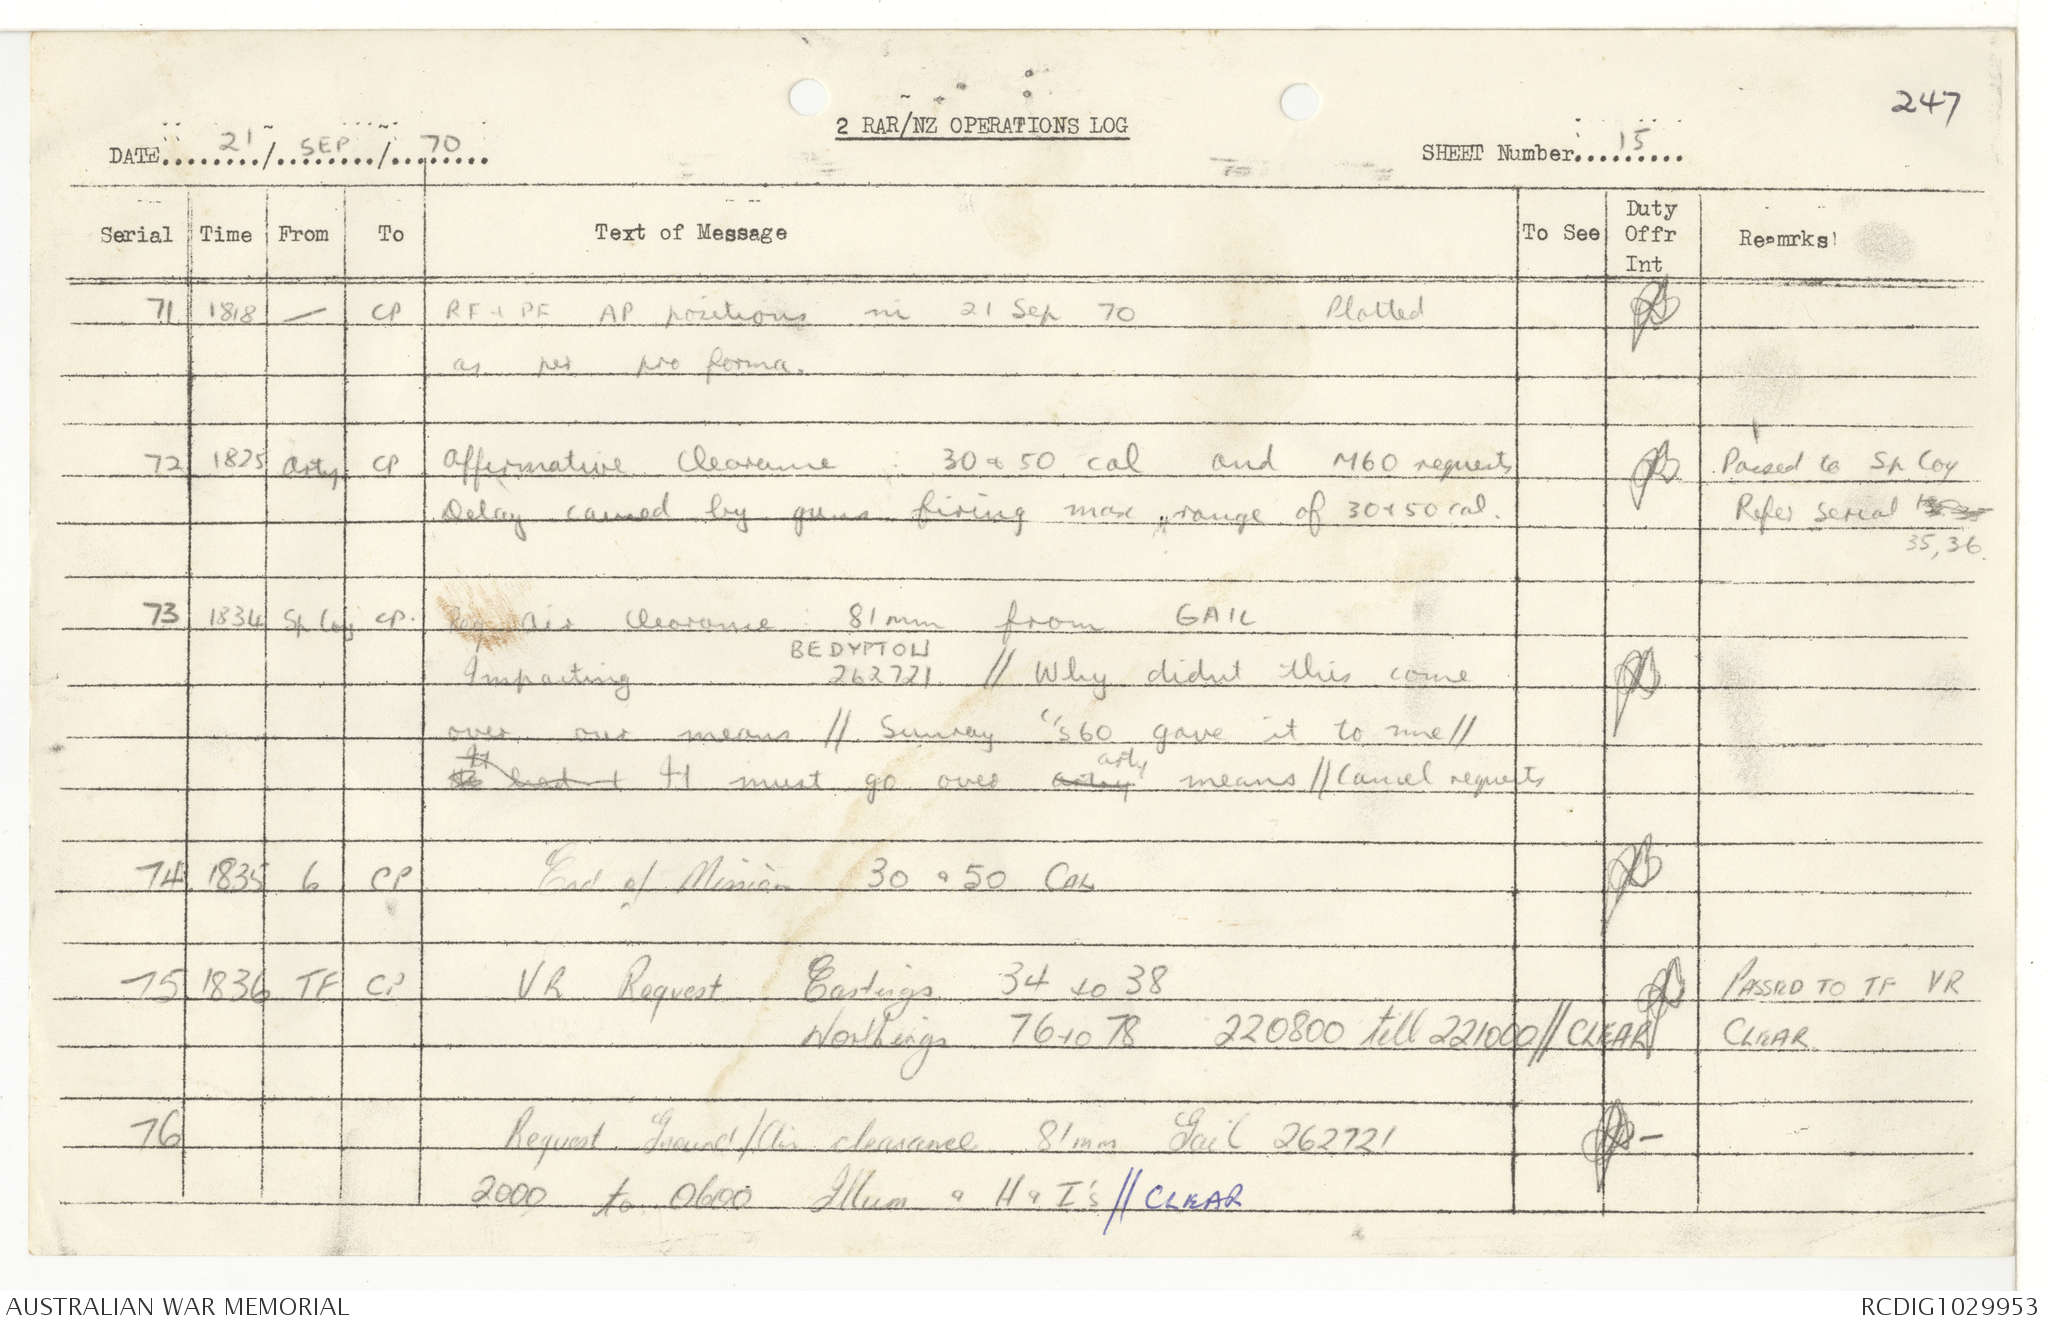 247
2 RAR/NZ OPERATIONS LOG
DATE 21/SEP/70
SHEET Number 15
Serial Time From To Text of Message To See Duty Offr Int Remrks
71 1818 — CP RF + PF AP positions in 21 Sep 70 Plotted
as per pro forma.
72 1825 Arty CP Affirmative Clearance 30 & 50 cal and M60 requests Passed to Sp Coy
Delay caused by guns firing max range of 30 & 50 cal. Refer Serial
35, 36.
73 1834 Sp Coy CP. Req Air Clearance 81mm from GAIL
BEDYPTON
Impacting 262721 // Why didnt this come
over our means // Sunray "S60 gave it to me //
It must go over arty means // Cancel requests
74 1835 6 CP End of Mission 30 & 50 CAL
75 1836 TF CP VR Request Eastings 34 to 38 PASSED TO TF VR
Northings 76 to 78 220800 till 221000 // CLEAR CLEAR
76 Request Ground/Air clearance 81mm Gail 262721
2000 to 0600 Illum & H & I's // CLEAR
AUSTRALIAN WAR MEMORIAL
RCDIG1029953